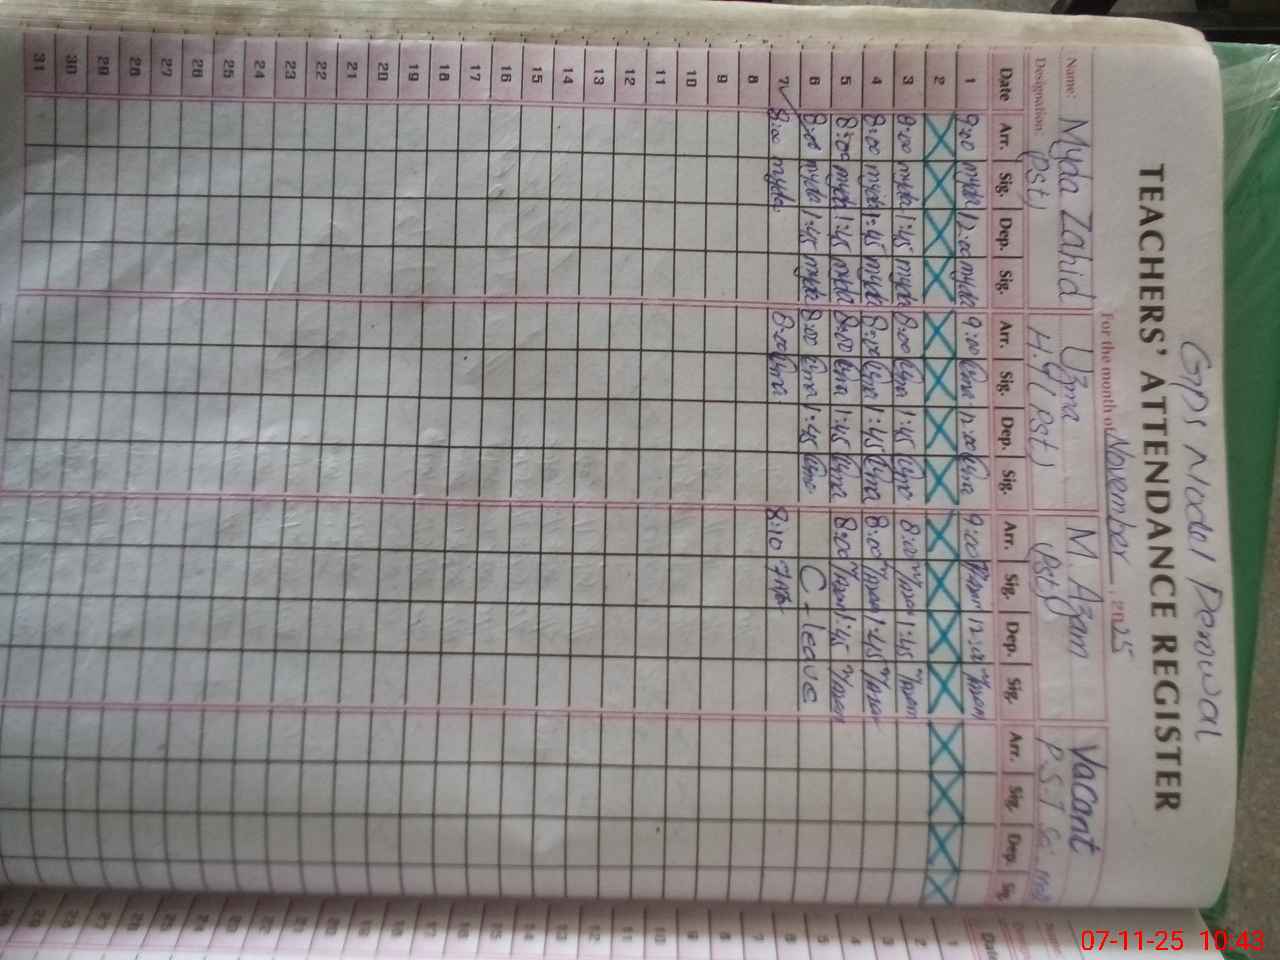 GPS Model Perowal
TEACHERS' ATTENDANCE REGISTER
For the month of November, 2025
Name: Myda Zahid Uzma M. Azam Vacant
Designation: (PST) H.T (PST) (PST) P.S.T
Date Arr. Sig. Dep. Sig. Arr. Sig. Dep. Sig. Arr. Sig. Dep. Sig. Arr. Sig. Dep. Sig.
1 9:00 myda 12:00 myda 9:00 Uzma 12:00 Uzma 9:00 12:00
2
3 8:00 myda 1:45 myda 8:00 Uzma 1:45 Uzma 8:00 1:45
4 8:00 myda 1:45 myda 8:00 Uzma 1:45 Uzma 8:00 1:45
5 8:00 myda 1:45 myda 8:00 Uzma 1:45 Uzma 8:00 1:45
6 8:00 myda 1:45 myda 8:00 Uzma 1:45 Uzma C-leave
7 8:00 myda 8:00 Uzma 8:10
8
9
10
11
12
13
14
15
16
17
18
19
20
21
22
23
24
25
26
27
28
29
30
31
07-11-25 10:43